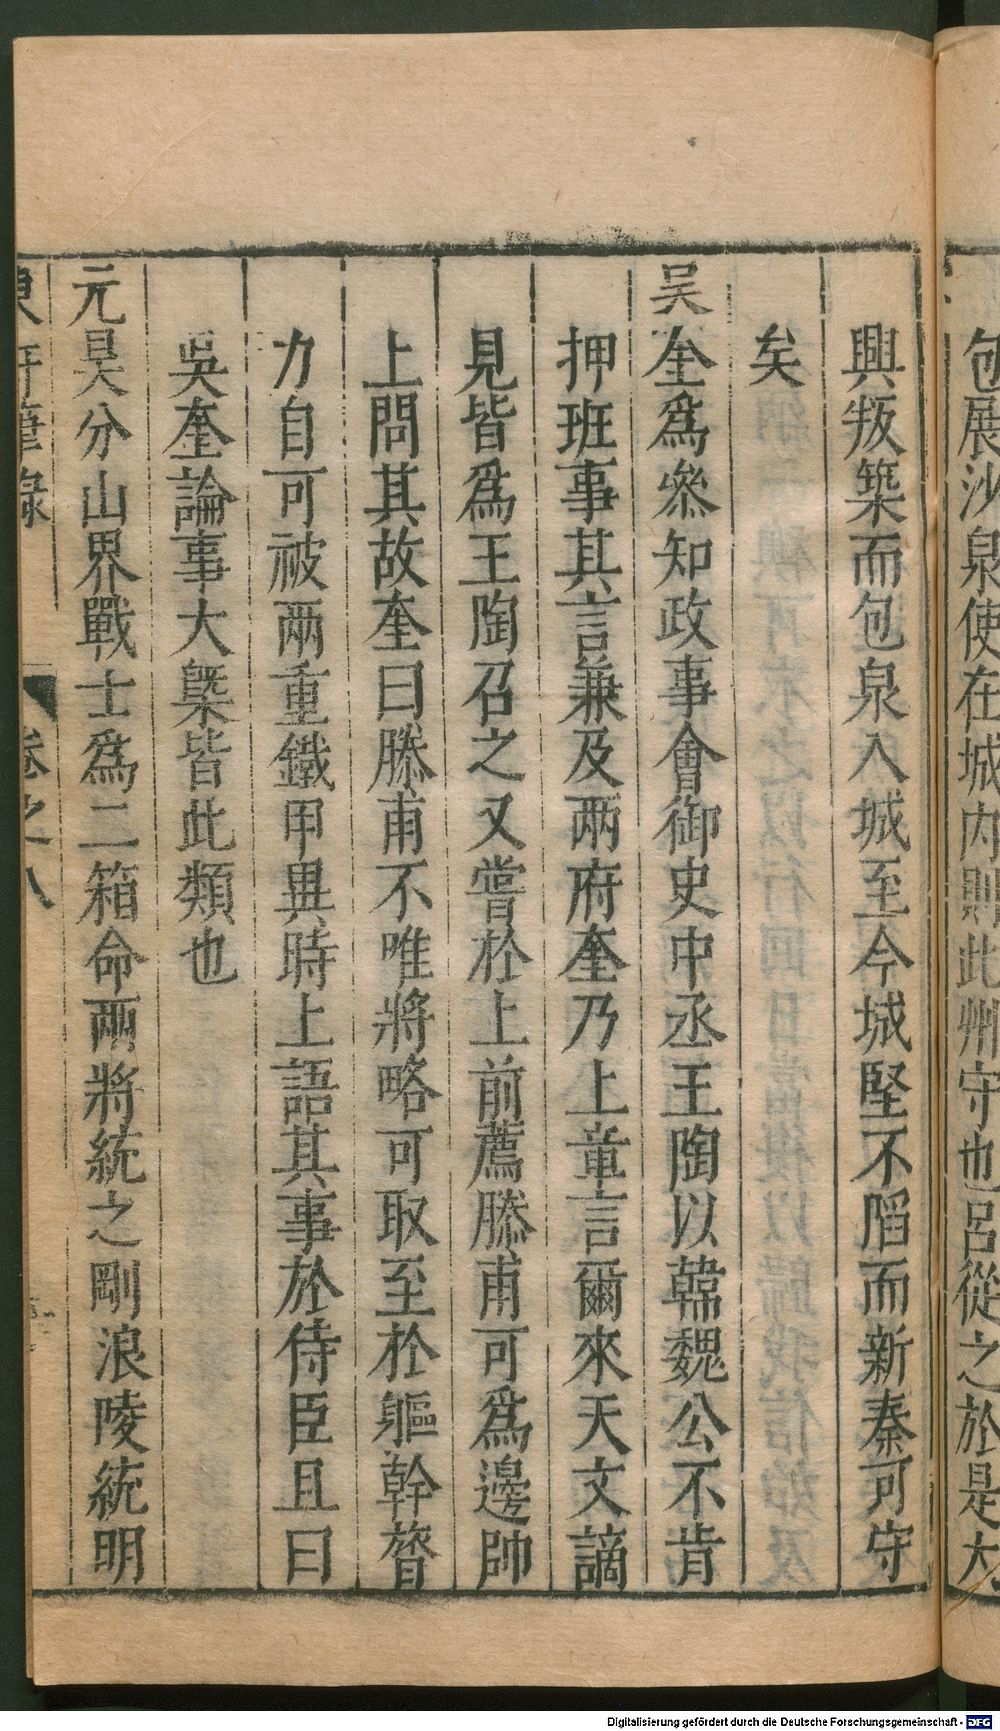 包展沙泉使在城内則此州守也呂從之於是大
興版築而包泉入城至今城堅不陷而新秦可守
矣
吴奎爲叅知政事會御史中丞王陶以韓魏公不肯
押班事其言兼及兩府奎乃上章言爾來天文謫
見皆爲王陶召之又嘗於上前薦滕甫可爲邊帥
上問其故奎曰滕甫不唯將略可取至於軀幹膂
力自可被兩重鐵甲異時上語其事於侍臣且曰
吳奎論事大槩皆此類也
元昊分山界戰士爲二箱命兩將統之剛浪㖫統明
東軒筆錄 卷之八
Digitalisierung gefördert durch die Deutsche Forschungsgemeinschaft - DFG